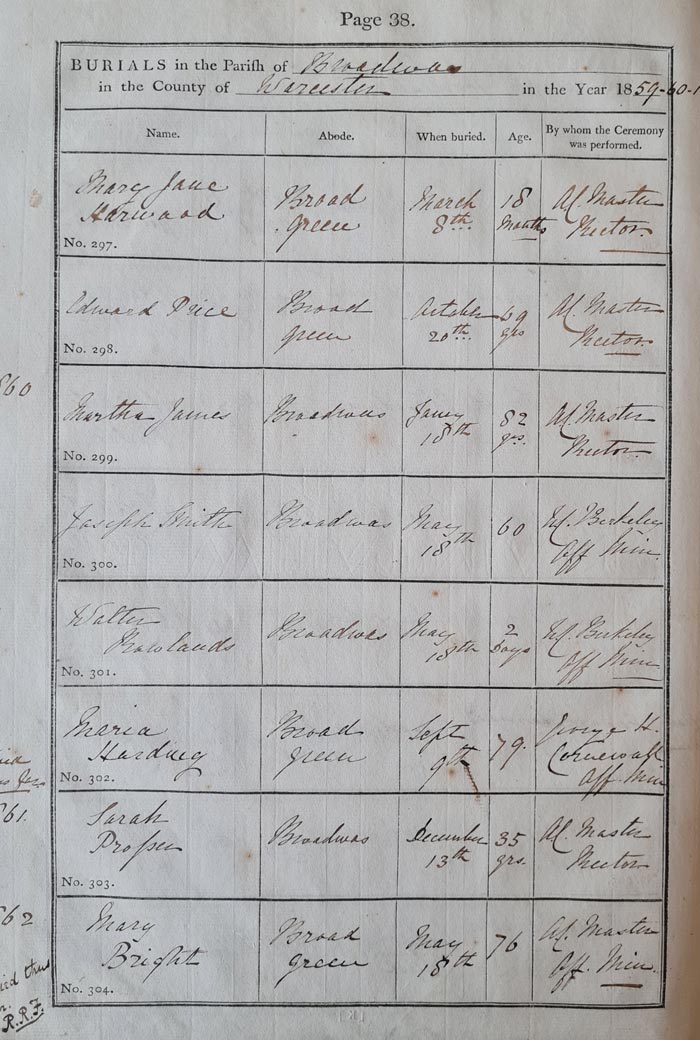 Page 38.
BURIALS in the Parish of Broadwas
in the County of Worcester in the Year 1859-60-1
Name. Abode. When buried. Age. By whom the Ceremony was performed.
Mary Jane Broad March 18 Master
Harwood green 8th Months Rector.
No. 297.
Edward Price Broad October 69 Master
green 20th yrs Rector.
No. 298.
860
Martha James Broadwas Jany 82 Master
18th yrs. Rector.
No. 299.
Joseph Smith Broadwas May 60 Berkeley
18th Off Min.
No. 300.
Walter Broadwas May 2 Berkeley
Rowlands 18th Days Off Min
No. 301.
Maria Broad Sept 79. George H.
Harding green 9th Cornewall
No. 302. Off Min
61.
Sarah Broadwas December 35 Master
Prosser 13th yrs. Rector
No. 303.
62
Mary Broad May 76 Master
Bright green 18th Off. Min.
No. 304.
thus
R.R.F.